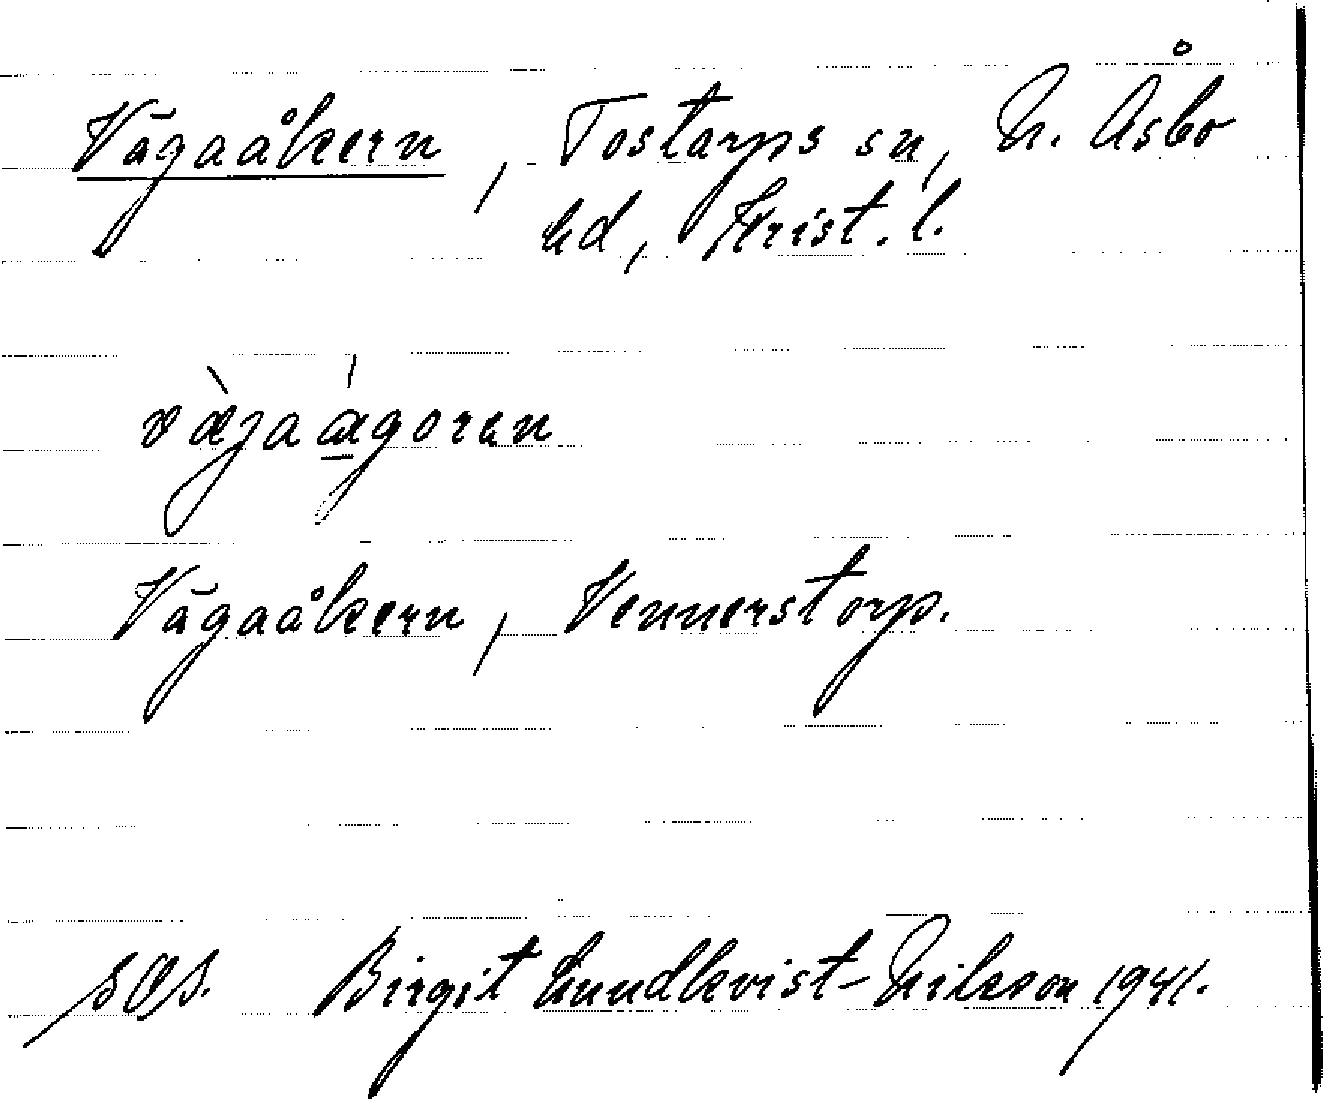 Vägaåkern, Tostarps sn, N. Åsbo
hd, Krist. l.
vàjaágoren
Vägaåkern, Vennerstorp.
Birgit Lundkvist-Nilsson 1941.